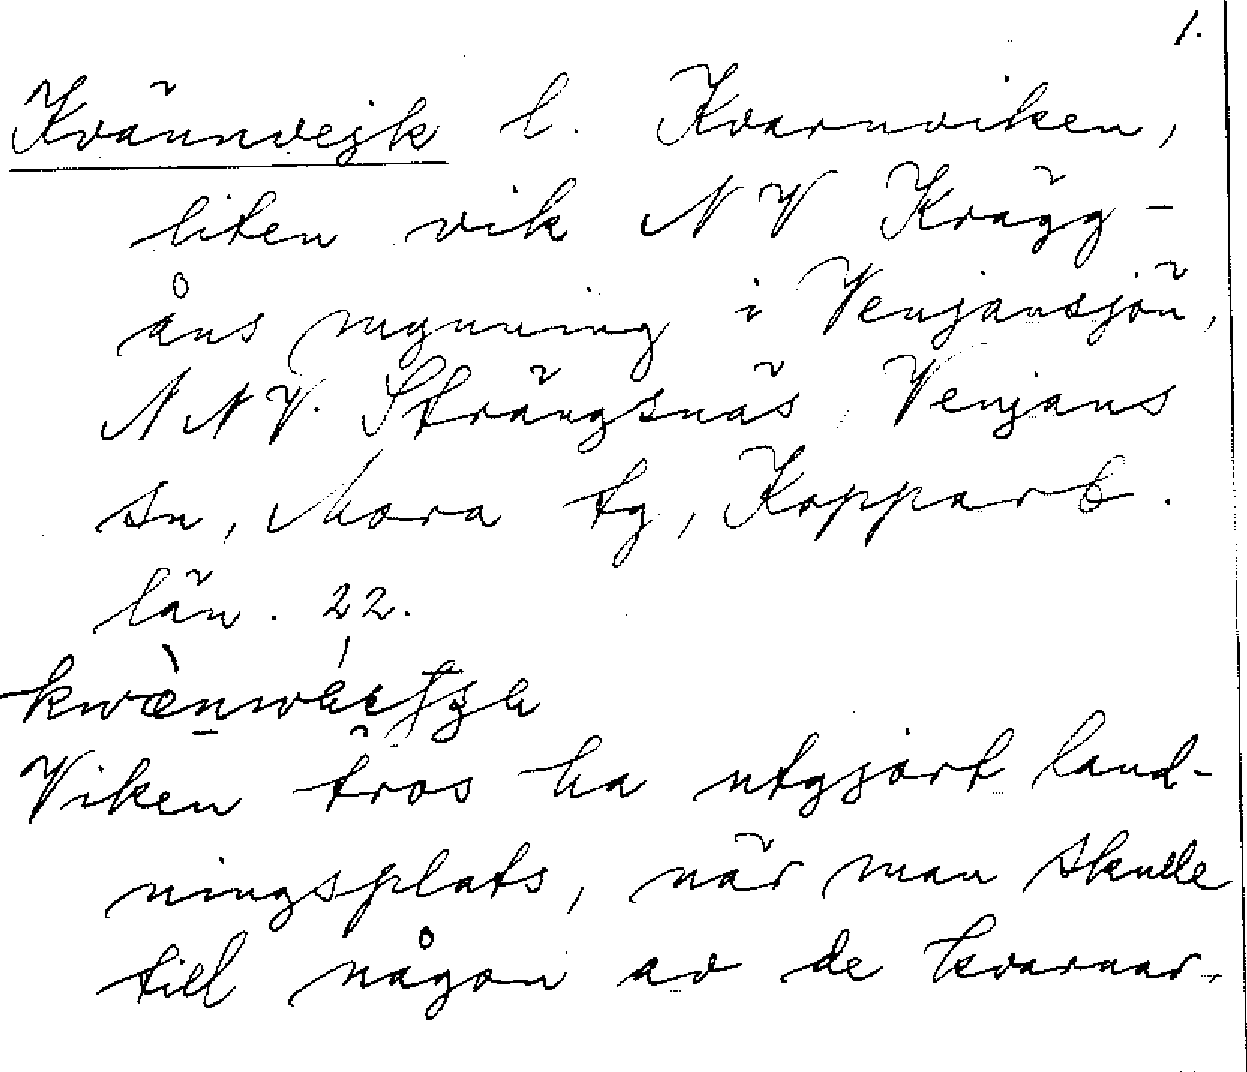 1.
Kvännvejk l. Kvarnviken,
liten vik NV Krägg-
åns mynning i Venjansjön,
NNV. Strängsnäs, Venjans
sn, Mora tg, Kopparb.
län. 22.
Viken tros ha utgjort land-
ningsplats, när man skulle
till någon av de kvarnar,